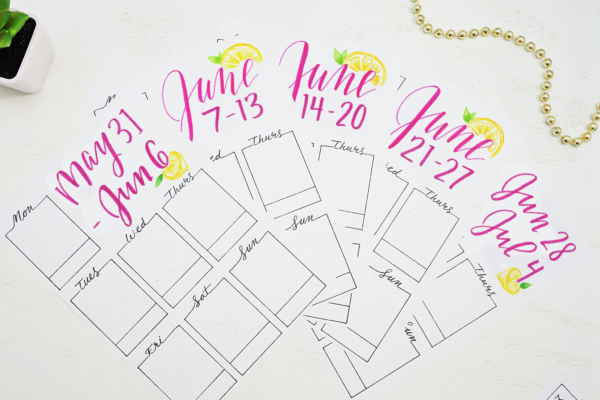 May 31
- Jun 6
June
7-13
June
14-20
June
21-27
Jun 28
Jul 4
Mon
Tues
Wed
Thurs
Fri
Sat
Sun
ed
Thurs
Sun
Thurs
ed
Thurs
Sun
Thurs
un